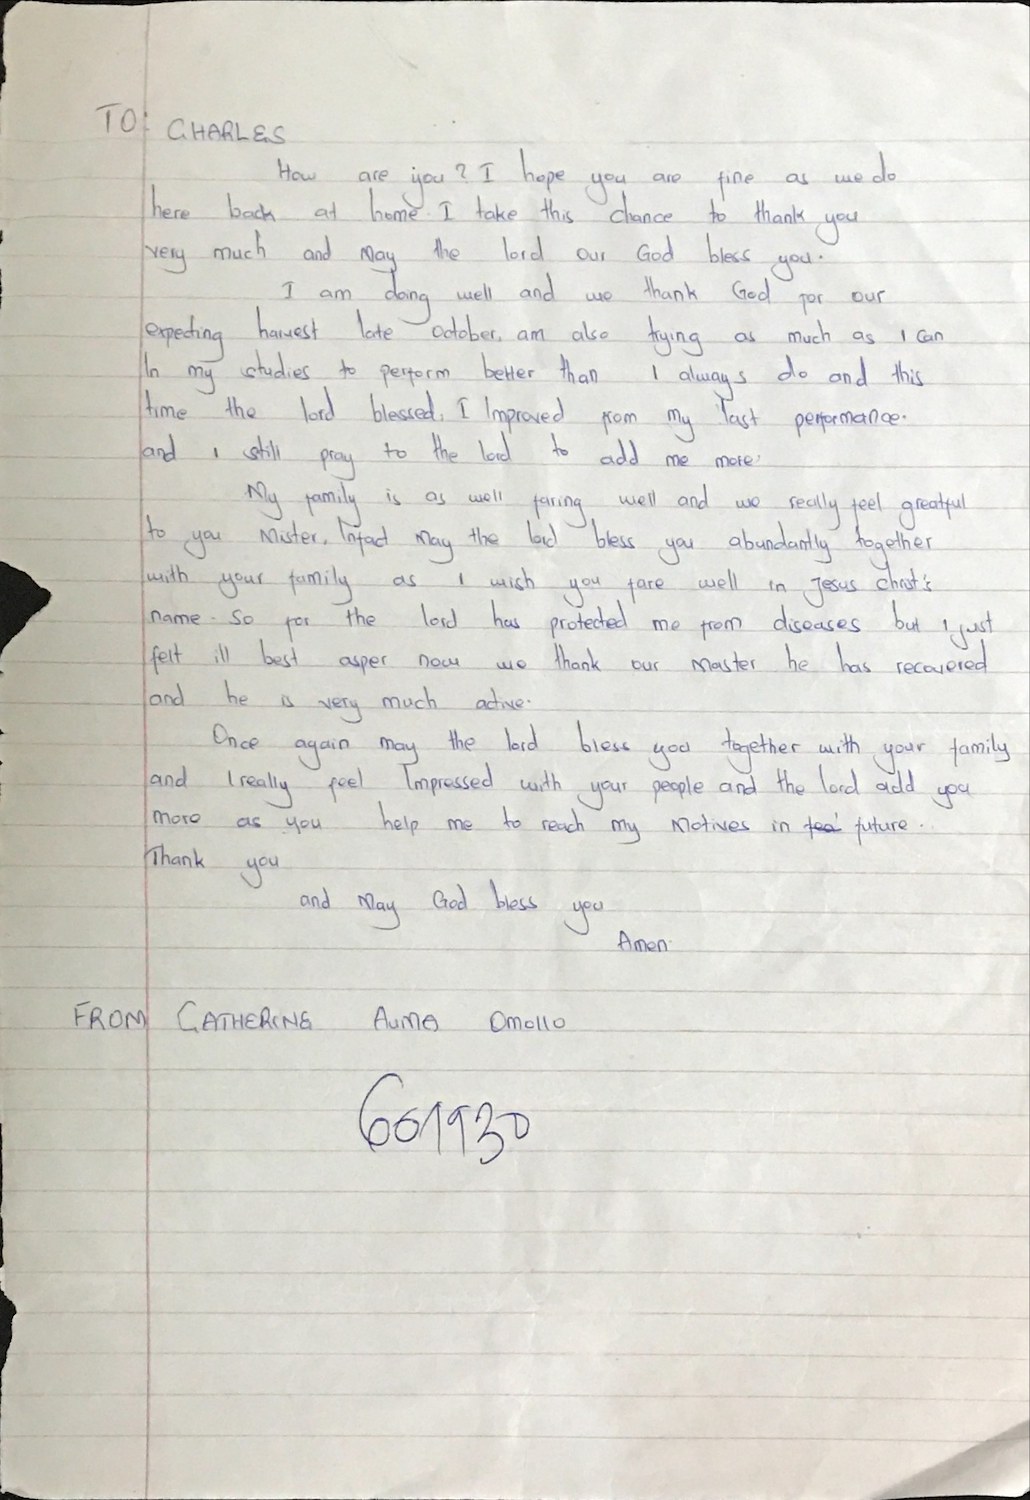 TO: CHARLES
How are you? I hope you are fine as we do
here back at home. I take this chance to thank you
very much and May the lord our God bless you.
I am doing well and we thank God for our
expecting harvest late october, am also trying as much as I can
In my studies to perform better than I always do and this
time the lord blessed, I Improved from my last performance.
and I still pray to the lord to add me more.
My family is as well faring well and we really feel greatful
to you Mister, Infact May the lord bless you abundantly together
with your family as I wish you fare well in Jesus chrst's
name. So for the lord has protected me from diseases but I just
felt ill best asper now we thank our Master he has recovered
and he is very much active.
Once again may the lord bless you together with your family
and I really feel Impressed with your people and the lord add you
more as you help me to reach my Motives in future.
Thank you
and May God bless you
Amen.
FROM CATHERINE AUMA OMOLLO
601930